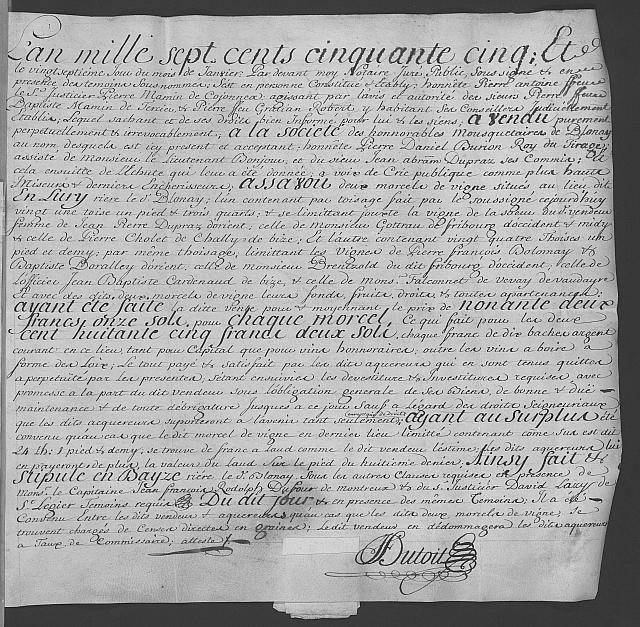 L'an mille sept cents cinquante cinq; Et
le vingtseptieme Jour du mois de Janvier; Par devant moy Notaire Juré Public, Sous signé & en
presence des temoins Sous nommes; S'est en personne Constitué & Etably; honnête Pierre antoine ffeu
le Sr Justicier Pierre Mamin de Cojongea agissant par lavis & autorité des Sieurs Pierre ffeu
Baptiste Mamin de & Pierre feu Robert, & habitant Ses Conseillers Judiciellement
Etablis; Lequel sachant et de ses droits bien Informé pour lui & les siens, a vendu purement
perpetuellement & irrevocablement, a la Société des honnorables Mousquetaires de Blonay
au nom desquels est icy present et acceptant; honnête Pierre Daniel Burion Roy du Tirage;
assisté de Monsieur le Lieutenant Bonjour, et du Sieur Jean abram Dupraz ses Commis; Et
cela ensuitte de l'échute qui leur a été donnée a voix de Crie publique comme plus haute
Miseurs & derniers Encherisseurs; assavoir deux morcels de vigne situés au lieu dit
En Jury riere le St Blonay; l'un contenant par toisage fait par le soussigné cejourd'huy
vingt une toise un pied & trois quarts; & se limittant jouxte la vigne de la soeur du dit vendeur
femme de Jean Pierre Dupraz d'orient, celle de Monsieur Gottrau de fribourg d'occident & midy
& celle de Pierre Cholet de Chally de bize; Et l'autre contenant vingt quatre Thoises un
pied et demy; par même thoisage, limittant les Vignes de Pierre françois Bolomay &
Baptiste Doralley d'orient, celle de monsieur du dit fribourg d'occident, celle de
l'officier Jean Baptiste Cardenaud de bize, & celle de Monsr Falconnet de Vevay de vaudayre
Et avec ces dits deux morcels de vigne leurs fonds, fruits, droits & toutes apartenances;
ayant été faite la ditte vente pour & moyennant le prix de nonante deux
francs onze Sols pour chaque morcel, Ce qui fait pour les deux
Cent huitante cinq francs deux Sols, chaque franc de dix baches argent
courant en ce lieu, tant pour Capital que pour vins honnoraires; outre les vins a boire a
forme des Loix; Le tout payé & satisfait par les dits aquereurs qui en sont tenus quittes
a perpetuité par les presentes, S'etant ensuivies les devestiture & Investitures requises avec
promesse a la part du dit vendeur sous l'obligation generale de ses biens, de bonne & due
maintenance & de toute debrigature jusques a ce jour Sauf a L'egard des droits Seigneuriaux
que les dits aquereurs suporteront a l'avenir tant seulement; ayant au Surplus été
convenu qu'au cas que le dit morcel de vigne en dernier lieu limitté contenant come Sus est dit
24 th: 1 pied & demy, se trouve de franc a laud comme le dit vendeur l'estime, les dits aquereurs lui
en payeront de plus, la valeurs du Laud sur le pied du huitieme denier, Ainsy fait &
Stipulé en Bayze riere le St Blonay sous les autres Clauses requises et presence de
Monsr le Capitaine Jean françois Rodolph Dufour de montreux & du Sr Justicier David Lavy de
St Legier Temoins requis Du dit Jour & en presence des mêmes Temoins; Il a été
Convenu Entre les dits vendeur & aquereurs qu'au cas que les dits deux morcels de vigne; se
trouvent chargés de Censes directes en graines; le dit vendeur en dédommagera les dits aquereurs
a Taux de Commissaire; atteste
Dutoit